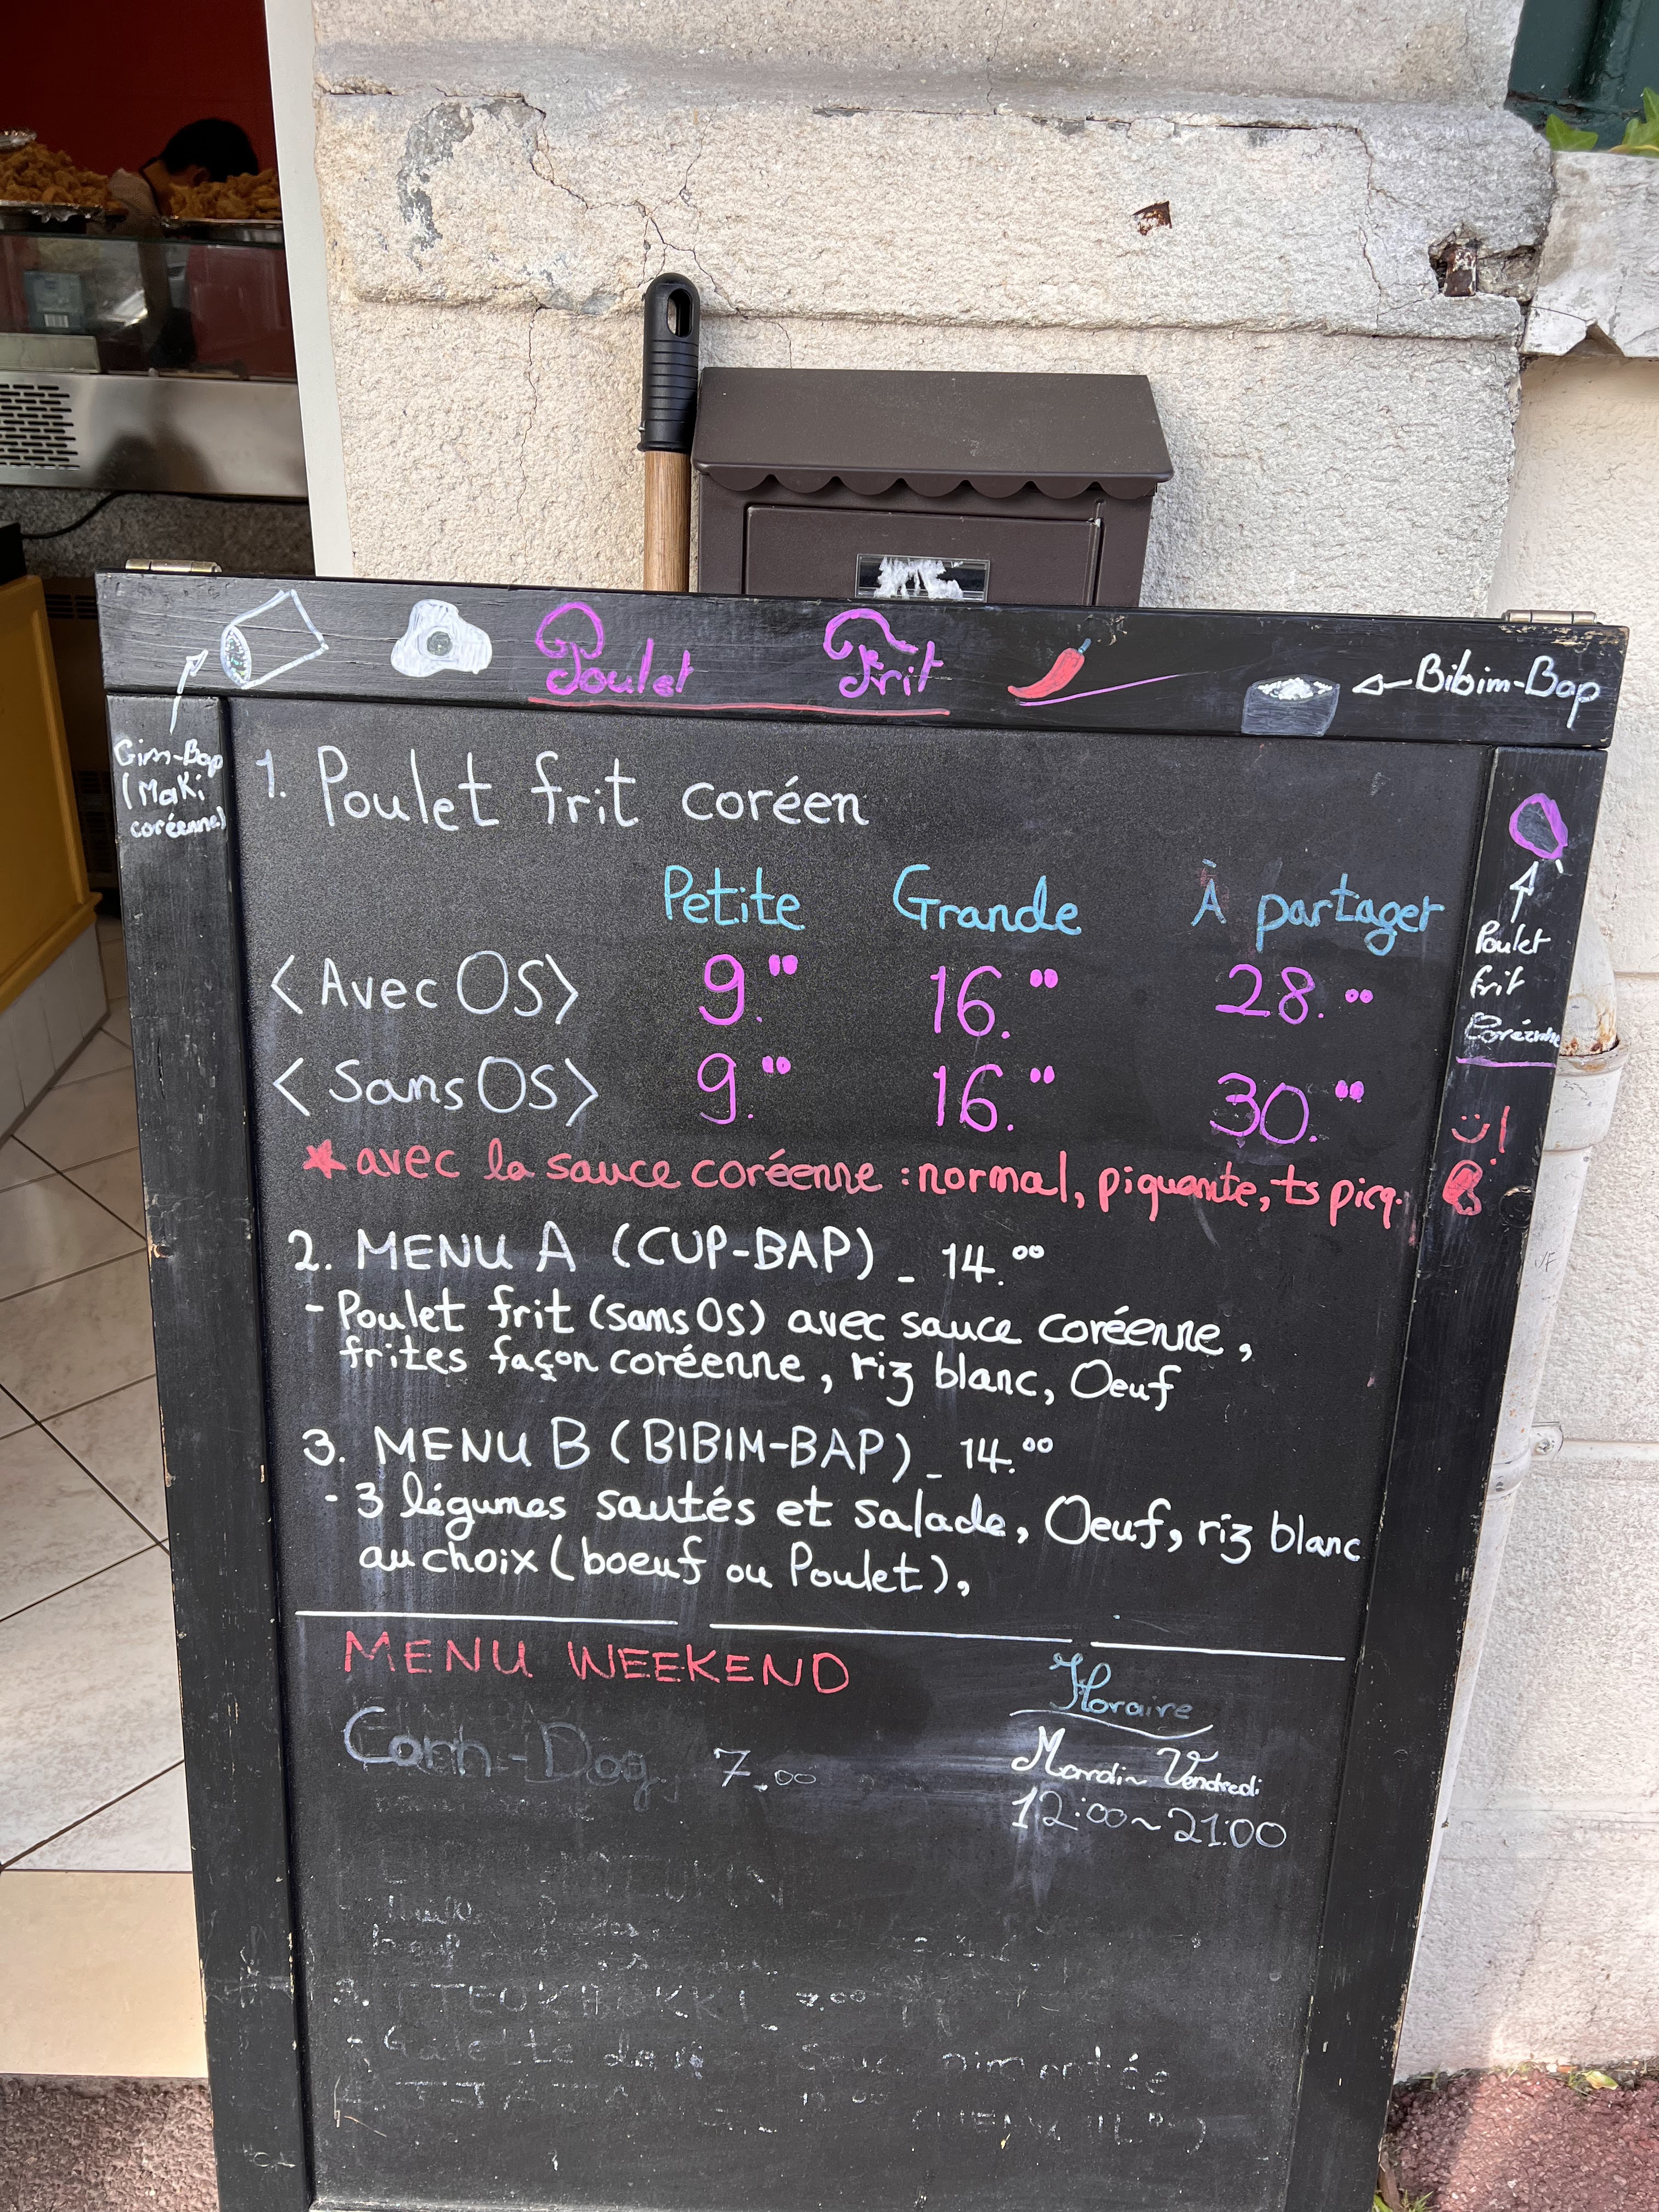 Poulet Frit
Bibim-Bap
Gim-Bap
(Maki
coréenne)
1. Poulet frit coréen
Petite Grande À partager
<Avec OS> 9."" 16."" 28.""
<Sans OS> 9."" 16."" 30.""
avec la sauce coréenne : normal, piquante, ts picq.
Poulet
frit
2. MENU A (CUP-BAP) _ 14.00
- Poulet frit (sans OS) avec sauce coréenne,
frites façon coréenne, riz blanc, Oeuf
3. MENU B (BIBIM-BAP) _ 14.00
- 3 légumes sautés et salade, Oeuf, riz blanc
au choix (boeuf ou Poulet),
MENU WEEKEND
7.00
Horaire
Mardi~Vendredi
12:00~21:00